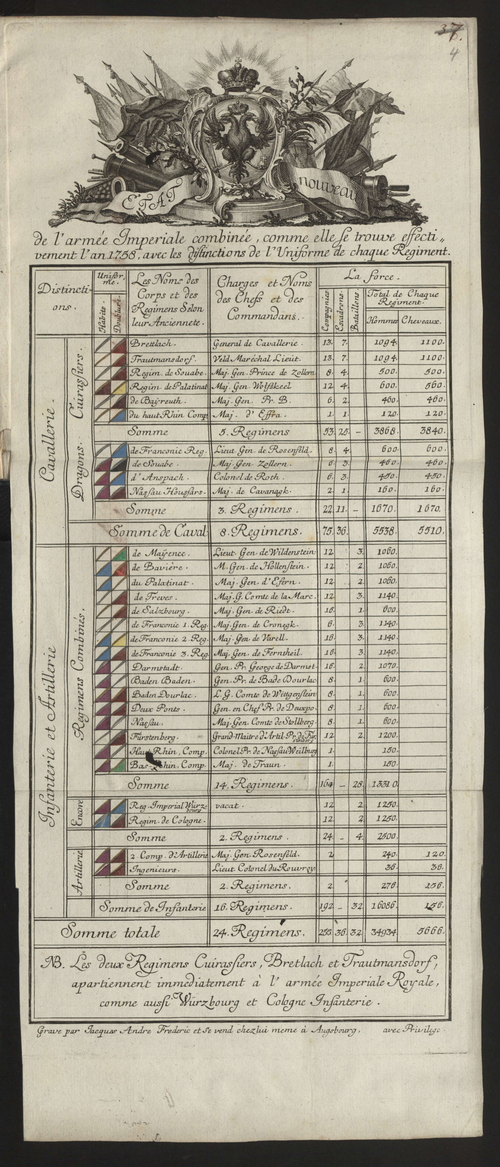 4
ETAT nouveau
de l'armée Imperiale combinée, comme elle se trouve effecti„
vement l'an 1758, avec les distinctions de l'Uniforme de chaque Regiment.
Distincti-
ons.
Unifor-
me.
Habits.
Doublure.
Les Noms des
Corps et des
Regimens Selon
leur Anciennete.
Charges et Noms
des Chefs et des
Commandans.
La force.
Compagnies
Escadrons
Bataillons
Total de Chaque
Regiment.
Hommes
Chevaux.
Cavallerie.
Cuirassiers.
Bretlach. General de Cavallerie. 13. 7. 1094. 1100.
Trautmansdorf. Veld Maréchal Lieut. 13. 7. 1094. 1100.
Regim. de Souabe. Maj. Gen. Prince de Zollern 8. 4. 500. 500.
Regim. de Palatinat Maj. Gen. Wolfskeel 12. 4. 600. 560.
de Baÿreuth. Maj. Gen. Pr. B. 6. 2. 460. 460.
du haut Rhin Comp. Maj. d'Effra. 1. 1. 120. 120.
Somme 5. Regimens 53. 25. – 3868. 3840.
Dragons.
de Franconie Reg. Lieut Gen. de Rosenfeld 8. 4. 600. 600.
de Souabe. Maj. Gen. Zollern. 6. 3. 460. 460.
d'Anspach. Colonel de Roth. 6. 3. 450. 450.
Nassau Houssars. Maj. de Cavanagk. 2. 1. 160. 160.
Somme 3. Regimens. 22. 11. – 1670. 1670.
Somme de Caval. 8. Regimens. 75. 36. 5538. 5510.
Infanterie et Artillerie
Regimens Combinés.
de Mayence. Lieut. Gen. de Wildenstein 12 3. 1060.
de Baviere. M. Gen. de Hollenstein. 12 2. 1060.
du Palatinat. Maj. Gen. d'Efern. 12 2. 1060.
de Treves. Maj. G. Comte de la Marc. 12 3. 1140.
de Salzbourg. Maj. Gen. de Riedt. 1. 600.
de Franconie 1. Reg. Maj. Gen. de Cronegk. 3. 1140.
de Franconie 2. Reg. Maj. Gen. de Varell. 3. 1140.
de Franconie 3. Reg. Maj. Gen. de Ferntheil. 3. 1140.
Darmstadt. Gen. Pr. George de Darmst. 2. 1070.
Baden Baden. Gen. Pr. de Bade Dourlac 8. 1. 600.
Baden Dourlac. L. G. Comte de Wittgenstein 8. 1. 600.
Deux Ponts. Gen. en Chef Pr. de Deuxpo. 8. 1. 600.
Nassau. Maj. Gen. Comte de Stollberg 8. 1. 600.
Fürstenberg. Grand-Maitre d'Artil. Pr. de Für 12 2. 1200.
Haut Rhin, Comp. Colonel Pr. de Nassau Weilburg 1. 150.
Bas Rhin. Comp. Maj. de Traun. 1. 150.
Somme 14. Regimens. 164 – 28. 13310.
Encore
Reg. Imperial Würz-
bourg vacat. 12 2. 1250.
Regim. de Cologne. 12 2. 1250.
Somme 2. Regimens. 24. – 4. 2500.
Artillerie
2 Comp. d'Artillerie Maj. Gen. Rosenfeld. 2 240. 120.
Ingenieurs. Lieut Colonel du Rouvroy 38. 38.
Somme 2. Regimens. 2 278 156.
Somme de Infanterie 16. Regimens. 192 – 32. 16086. 156.
Somme totale 24. Regimens. 36. 32. 5666.
NB. Les deux Regimens Cuirassiers, Bretlach et Trautmansdorf,
apartiennent immediatement à l'armée Imperiale Royale,
comme aussi Würzbourg et Cologne Infanterie.
Grave par Jacques Andre Frederic et se vend chez lui meme à Augsbourg, avec Privilege.